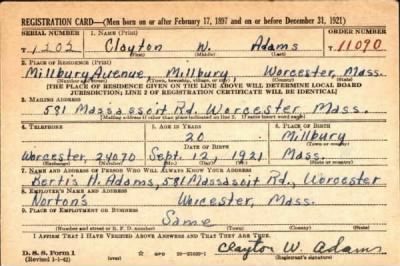 REGISTRATION CARD—(Men born on or after February 17, 1897 and on or before December 31, 1921)
SERIAL NUMBER 1. NAME (Print) ORDER NUMBER
T 1202 Clayton W. Adams T 11090
(First) (Middle) (Last)
2. PLACE OF RESIDENCE (Print)
Millbury Avenue Millbury Worcester, Mass.
(Number and street) (Town, township, village, or city) (County) (State)
[THE PLACE OF RESIDENCE GIVEN ON THE LINE ABOVE WILL DETERMINE LOCAL BOARD
JURISDICTION; LINE 2 OF REGISTRATION CERTIFICATE WILL BE IDENTICAL]
3. MAILING ADDRESS
581 Massasoit Rd. Worcester, Mass.
[Mailing address if other than place indicated on line 2. If same insert word same]
4. TELEPHONE 5. AGE IN YEARS 6. PLACE OF BIRTH
20 Millbury
DATE OF BIRTH (Town or county)
Worcester, 24070 Sept. 12 1921 Mass.
(Exchange) (Number) (Mo.) (Day) (Yr.) (State or country)
7. NAME AND ADDRESS OF PERSON WHO WILL ALWAYS KNOW YOUR ADDRESS
H. Adams, 581 Massasoit Rd., Worcester
8. EMPLOYER'S NAME AND ADDRESS
Norton's Worcester, Mass.
9. PLACE OF EMPLOYMENT OR BUSINESS
Same
(Number and street or R. F. D. number) (Town) (County) (State)
I AFFIRM THAT I HAVE VERIFIED ABOVE ANSWERS AND THAT THEY ARE TRUE.
D. S. S. Form 1 Clayton W. Adams
(Revised 1-1-42) GPO (Registrant's signature)